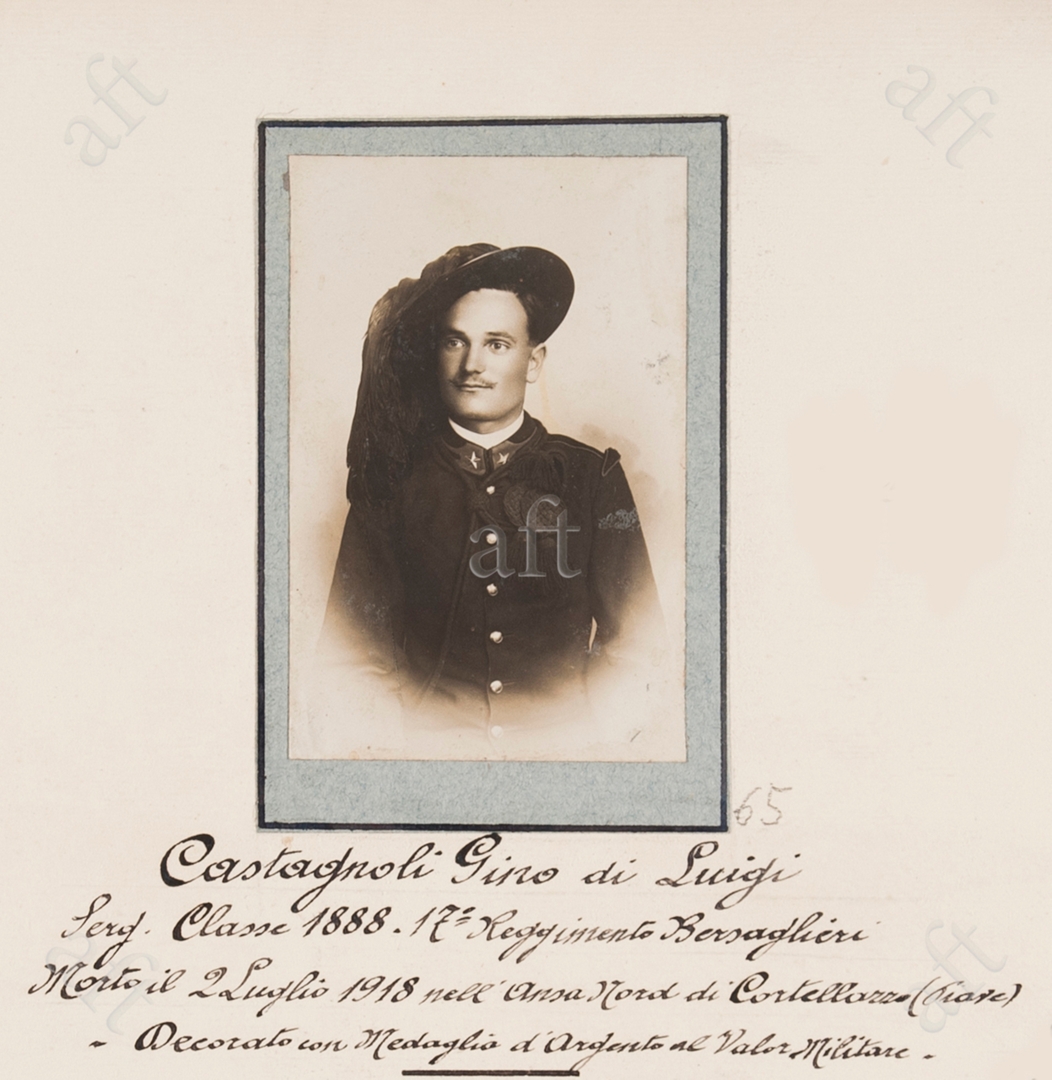 aft
aft
aft
65
Castagnoli Gino di Luigi
Serg. Classe 1888. 17º Reggimento Bersaglieri
Morto il 2 Luglio 1918 nell'Ansa Nord di Cortellazzo (Piave)
- Decorato con Medaglia d'Argento al Valor Militare -
aft
aft